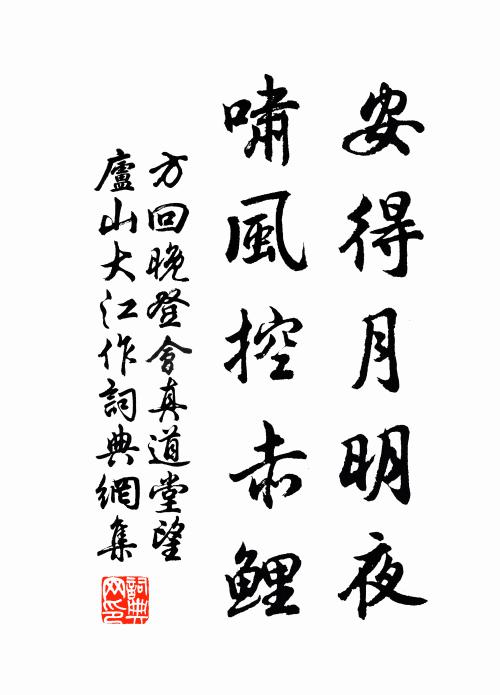 安得月明夜
嘯風控赤鯉
方回晚登會真道堂望
廬山大江作詞典網集
詞典
网印